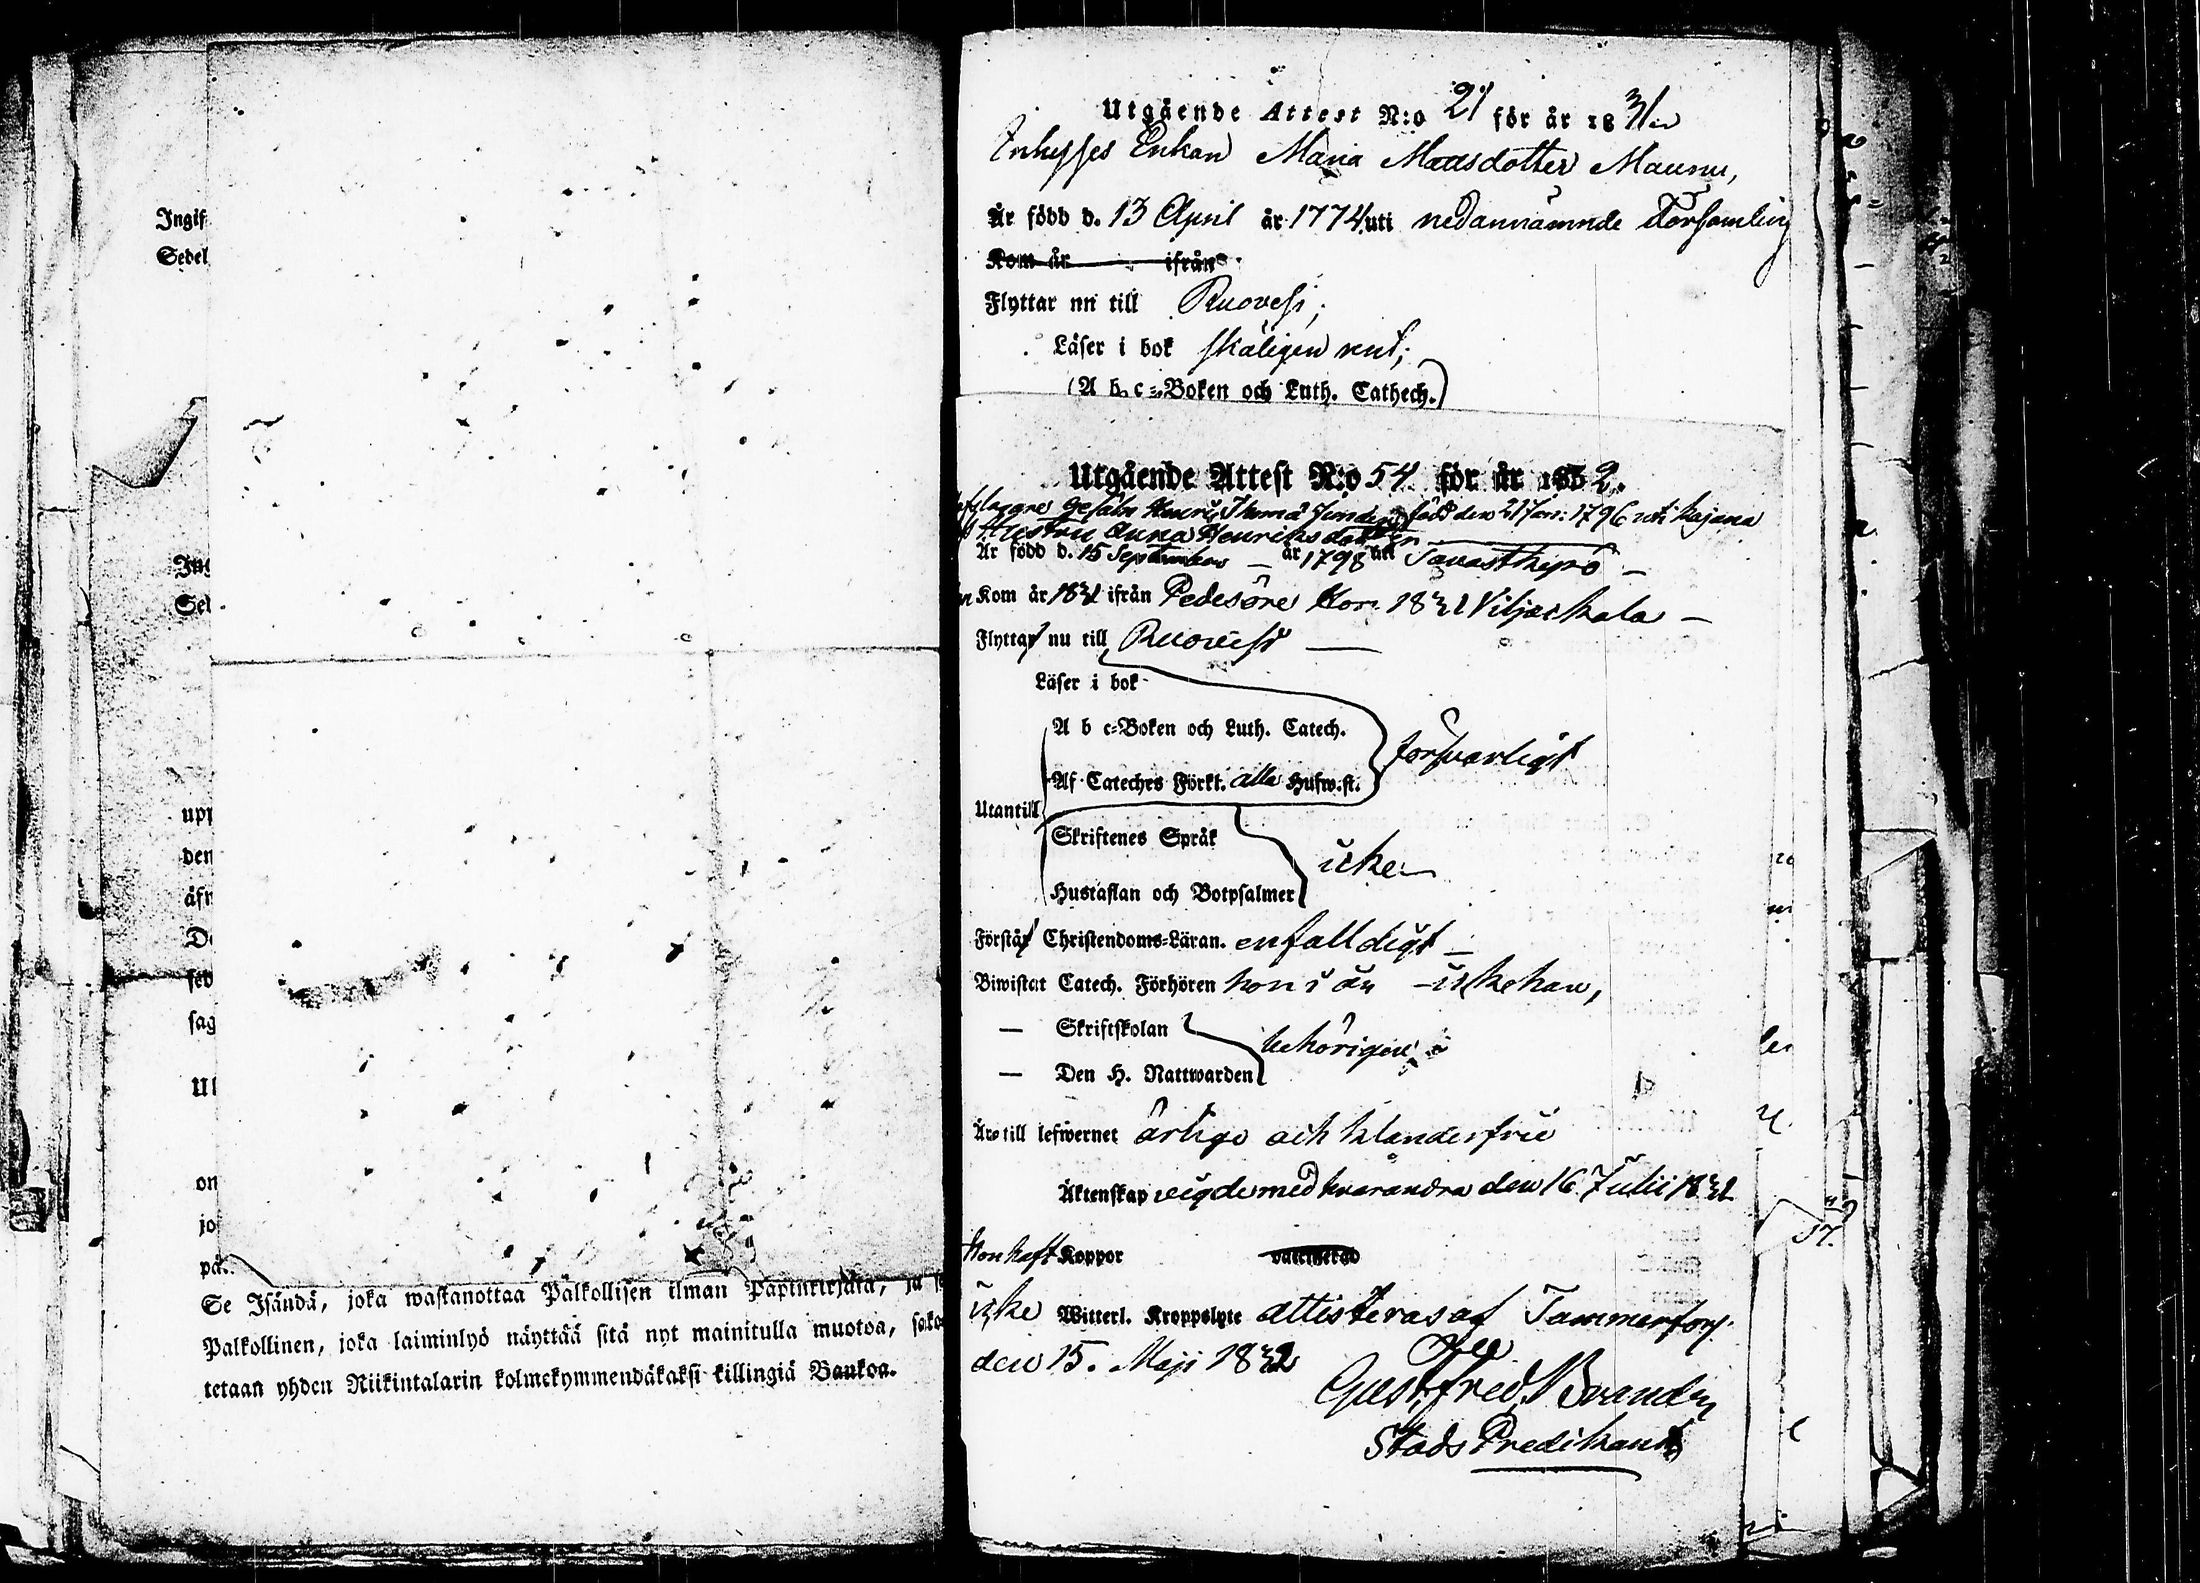 Ingif
Sedel
Ing
Sed
upp
den
äfr
De
sed
sag
Ul
on
jo
på
Se Isändä, joka wastanottaa Palkollisen ilman Papinkirjata, ja
Palkollinen, joka laiminlyö näyttää sitä nyt mainitulla muotoa, sako
tetaan yhden Riikintalarin kolmekymmendäkaksi killingiä Bankoa.
Utgående Attest N:o 21 för år 1831
Inhyses Enkan Maria Matsdotter Maunu,
Är född d. 13 April år 1774 uti nedannämnde Församling
Kom år ifrån
Flyttar nu till Ruovesi;
Läser i bok skäligen rent;
(A b c-Boken och Luth. Cathech.)
Utgående Attest N:o 54 för år 1832.
Gesäln Henric Thomä född den 21 Jan: 1796 uti Kajana
Hustru Anna Henriksdotter
Är född d. 15 September år 1798 uti Tavastkyrö
Kom år 1831 ifrån Pedesöre hon 1831 Viljackala
Flyttar nu till Ruovesi
Läser i bok
A b c-Boken och Luth. Catech.
försvarligt
Af Cateches Förkl. alla Hufw.st.
Utantill
Skriftenes Språk
icke
Hustaflan och Botpsalmer
Förstår Christendoms-Läran. enfalldigt
Biwistat Catech. Förhören hon i år icke han,
— Skriftskolan
behörigen
— Den H. Nattwarden
Äro till lefwernet ärlige och klanderfrie
Äktenskap vigde med hvarandra den 16 Julii 1831
Hon haft Koppor vaccinerad
icke Witterl. Kroppslyte attesteras af Tammerfors
den 15. Maji 1832
Gust. Fred. Brander
Stads Predikant